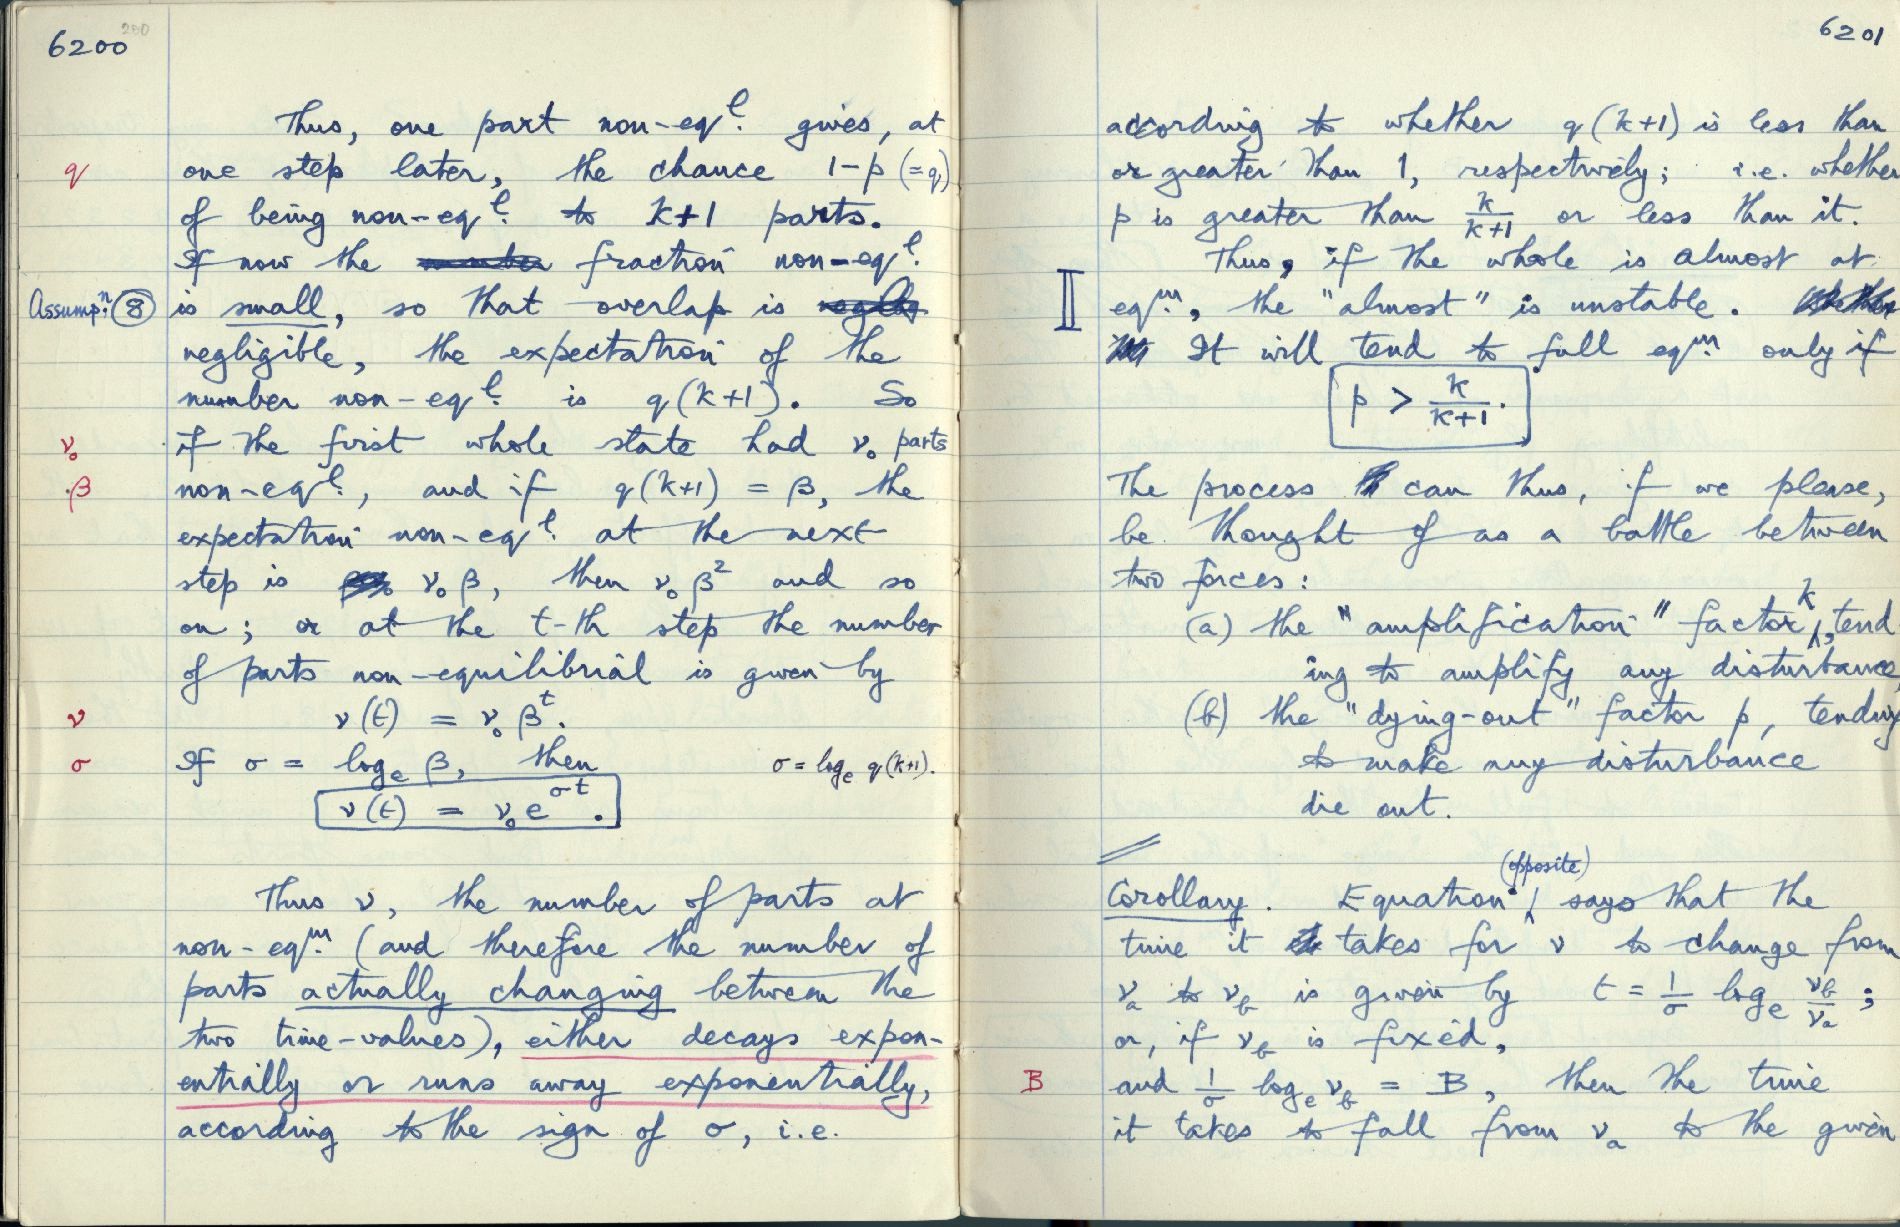 6200
200
Thus, one part non-eqˡ. gives, at
q one step later, the chance 1-p (=q)
of being non-eqˡ. to k+1 parts.
If now the number fraction non-eqˡ.
Assumpⁿ. ⑧ is small, so that overlap is
negligible, the expectation of the
number non-eqˡ. is q(k+1). So
ν₀ if the first whole state had ν₀ parts
β non-eqˡ., and if q(k+1) = β, the
expectation non-eqˡ. at the next
step is ν₀β, then ν₀β² and so
on; or at the t-th step the number
of parts non-equilibrial is given by
ν ν(t) = ν₀βᵗ.
σ If σ = logₑ β, then σ = logₑ q(k+1).
ν(t) = ν₀e^σt.
Thus ν, the number of parts at
non-eqᵐ. (and therefore the number of
parts actually changing between the
two time-values), either decays expon-
entially or runs away exponentially,
according to the sign of σ, i.e.
6201
according to whether q(k+1) is less than
or greater than 1, respectively; i.e. whether
p is greater than k/k+1 or less than it.
Thus, if the whole is almost at
II eqᵐ., the "almost" is unstable. Whether
It will tend to full eqᵐ. only if
p > k/k+1.
The process can thus, if we please,
be thought of as a battle between
two forces:
(a) the "amplification" factor k, tend
ing to amplify any disturbance
(b) the "dying-out" factor p, tending
to make any disturbance
die out.
Corollary. Equation (opposite) says that the
time it takes for ν to change from
νₐ to ν_b is given by t = 1/σ logₑ ν_b/νₐ;
or, if ν_b is fixed,
B and 1/σ logₑ ν_b = B, then the time
it takes to fall from νₐ to the given